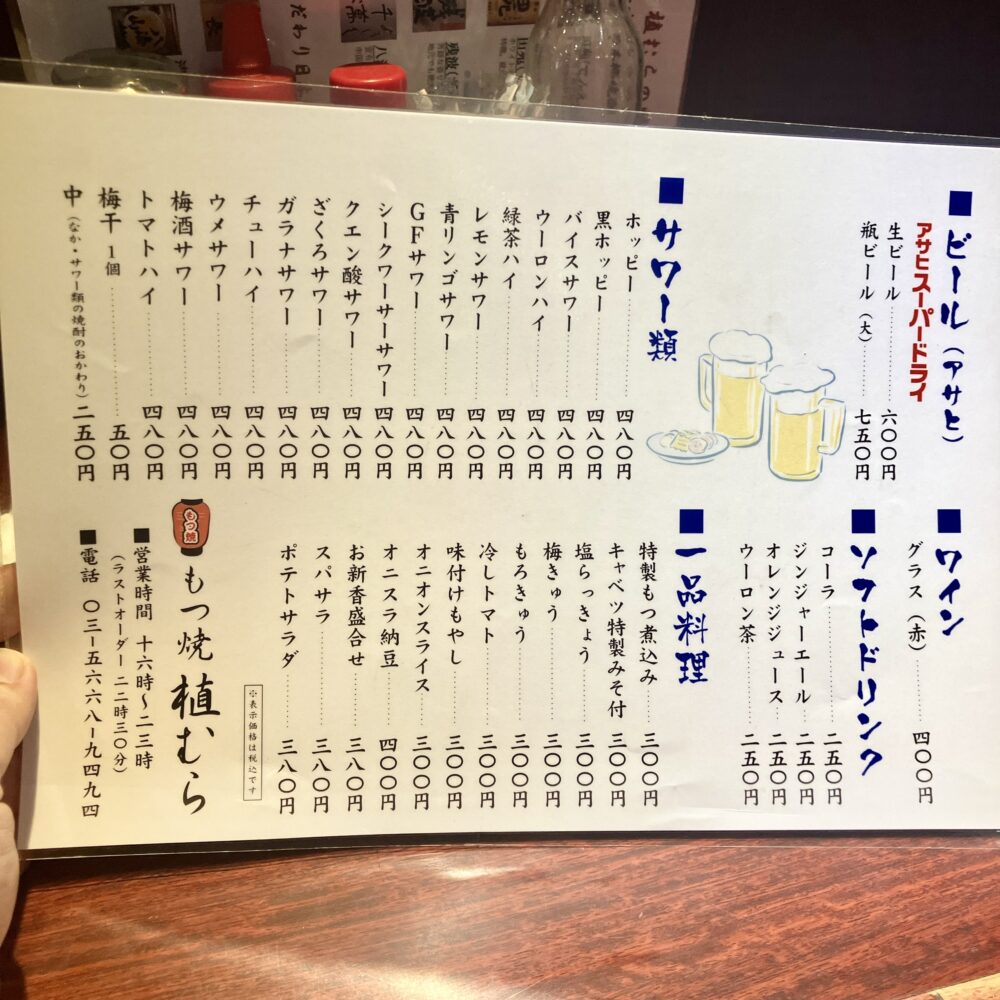 ■ビール（アサヒ）
アサヒスーパードライ
生ビール 六〇〇円
瓶ビール（大） 七五〇円
■サワー類
ホッピー 四八〇円
黒ホッピー 四八〇円
バイスサワー 四八〇円
ウーロンハイ 四八〇円
緑茶ハイ 四八〇円
レモンサワー 四八〇円
青リンゴサワー 四八〇円
GFサワー 四八〇円
シークワーサーサワー 四八〇円
クエン酸サワー 四八〇円
ざくろサワー 四八〇円
ガラナサワー 四八〇円
チューハイ 四八〇円
ウメサワー 四八〇円
梅酒サワー 四八〇円
トマトハイ 四八〇円
梅干 1個 五〇円
中（なか・サワー類の焼酎のおかわり） 二五〇円
■ワイン
グラス（赤） 四〇〇円
■ソフトドリンク
コーラ 二五〇円
ジンジャーエール 二五〇円
オレンジジュース 二五〇円
ウーロン茶 二五〇円
■一品料理
特製もつ煮込み 三〇〇円
キャベツ特製みそ付 三〇〇円
塩らっきょう 三〇〇円
梅きゅう 三〇〇円
もろきゅう 三〇〇円
冷しトマト 三〇〇円
味付けもやし 三〇〇円
オニオンスライス 三〇〇円
オニスラ納豆 四〇〇円
お新香盛合せ 三八〇円
スパサラ 三八〇円
ポテトサラダ 三八〇円
※表示価格は税込です
もつ焼
もつ焼 植むら
■営業時間 十六時〜二三時
（ラストオーダー 二二時三〇分）
■電話 〇三−五六六八−九四九四